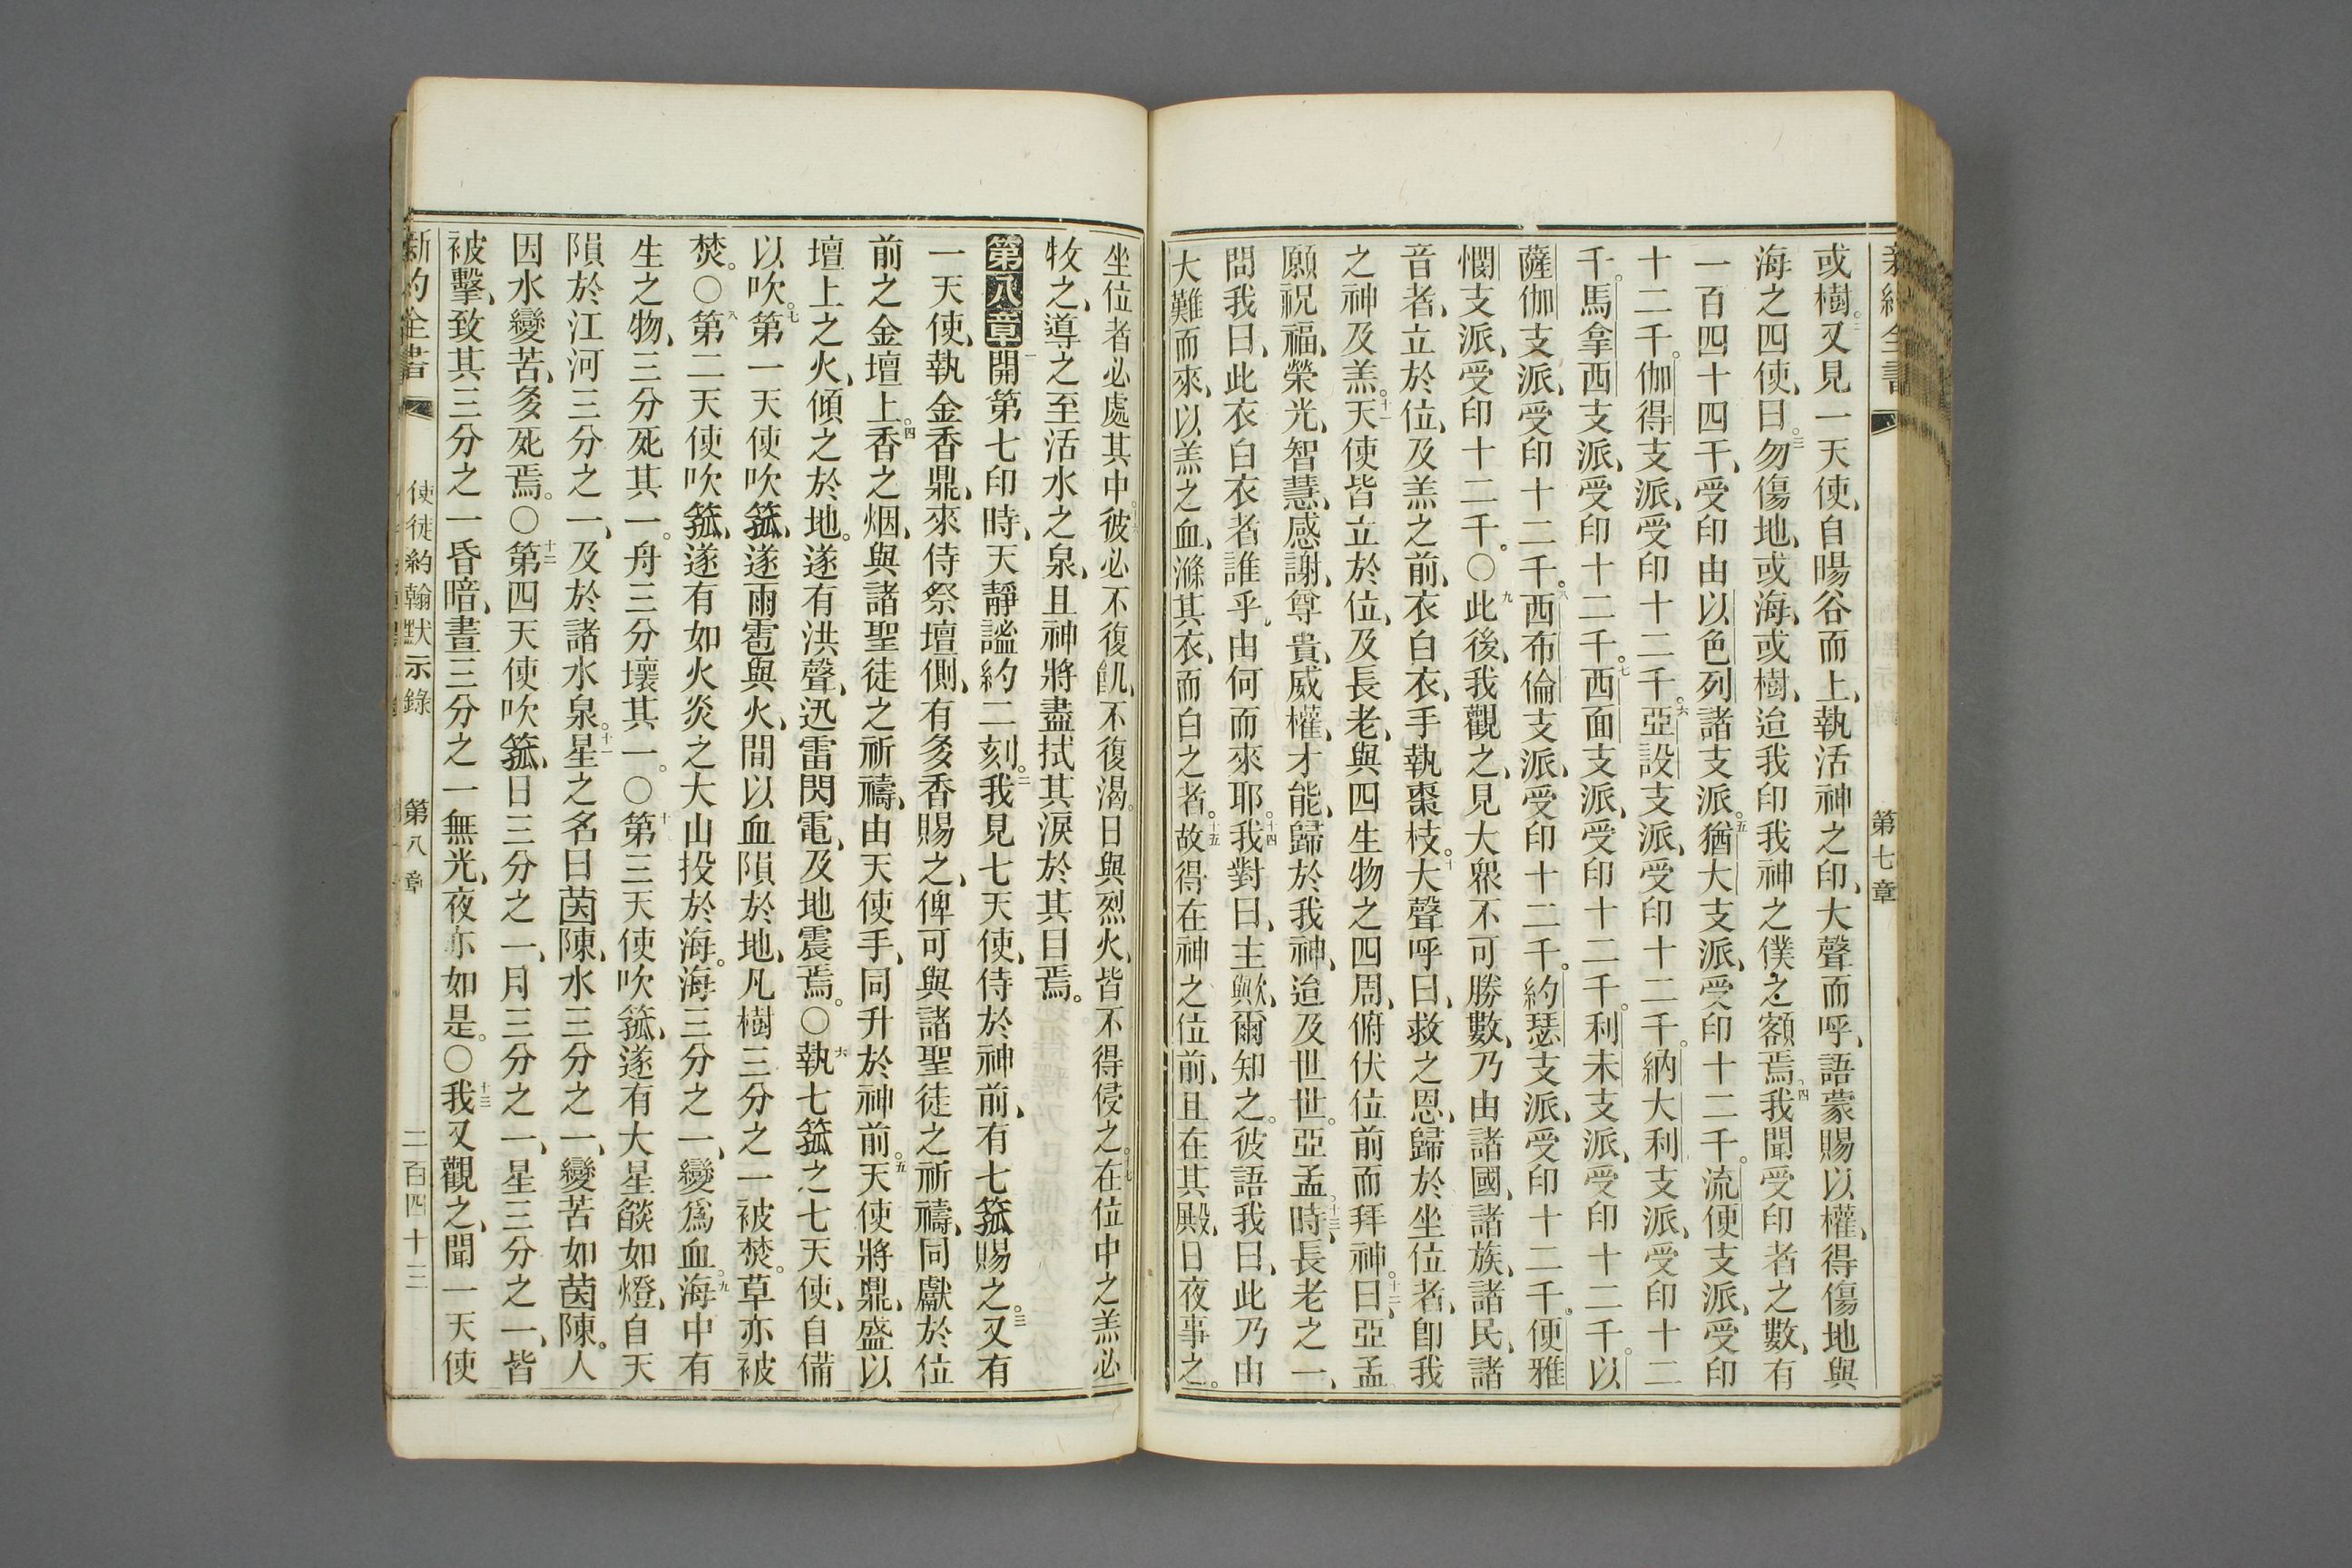 新約全書
第七章
或樹。二又見一天使、自暘谷而上、執活神之印、大聲而呼、語蒙賜以權、得傷地與
海之四使、曰。三勿傷地、或海、或樹、迨我印我神之僕之額焉、四我聞受印者之數、有
一百四十四千、受印由以色列諸支派。五猶大支派、受印十二千。流便支派、受印
十二千。伽得支派、受印十二千。六亞設支派、受印十二千。納大利支派、受印十二
千。馬拿西支派、受印十二千。七西面支派、受印十二千。利未支派、受印十二千。以
薩伽支派、受印十二千。八西布倫支派、受印十二千。約瑟支派、受印十二千。便雅
憫支派、受印十二千。〇九此後、我觀之、見大眾不可勝數、乃由諸國、諸族、諸民、諸
音者、立於位、及羔之前、衣白衣、手執棗枝。十大聲呼曰、救之恩、歸於坐位者、卽我
之神及羔。十一天使皆立於位、及長老、與四生物之四周、俯伏位前而拜神。十二曰、亞孟
願祝福、榮光、智慧、感謝、尊貴、威權、才能、歸於我神、迨及世世。亞孟、十三時、長老之一、
問我曰、此衣白衣者誰乎、由何而來耶。十四我對曰、主歟、爾知之。彼語我曰、此乃由
大難而來、以羔之血、滌其衣、而白之者。十五故得在神之位前、且在其殿、日夜事之。
坐位者必處其中。十六彼必不復飢、不復渴。日與烈火、皆不得侵之。十七在位中之羔必
牧之、導之至活水之泉、且神將盡拭其淚於其目焉。
第八章一開第七印時、天靜謐約二刻。二我見七天使、侍於神前、有七箛賜之。三又有
一天使、執金香鼎、來侍祭壇側、有多香賜之、俾可與諸聖徒之祈禱、同獻於位
前之金壇上。四香之烟、與諸聖徒之祈禱、由天使手、同升於神前。五天使將鼎、盛以
壇上之火、傾之於地。遂有洪聲、迅雷閃電、及地震焉。〇六執七箛之七天使、自備
以吹。七第一天使吹箛、遂雨雹與火、間以血隕於地、凡樹三分之一被焚。草亦被
焚。〇八第二天使吹箛、遂有如火炎之大山投於海。海三分之一、變爲血。九海中有
生之物、三分死其一。舟三分壞其一。〇十第三天使吹箛、遂有大星燄如燈、自天
隕於江河三分之一、及於諸水泉。十一星之名曰茵陳、水三分之一、變苦如茵陳。人
因水變苦、多死焉。〇十二第四天使吹箛、日三分之一、月三分之一、星三分之一、皆
被擊、致其三分之一昏暗、晝三分之一無光、夜亦如是。〇十三我又觀之、聞一天使
新約全書
使徒約翰默示錄
第八章
二百四十三